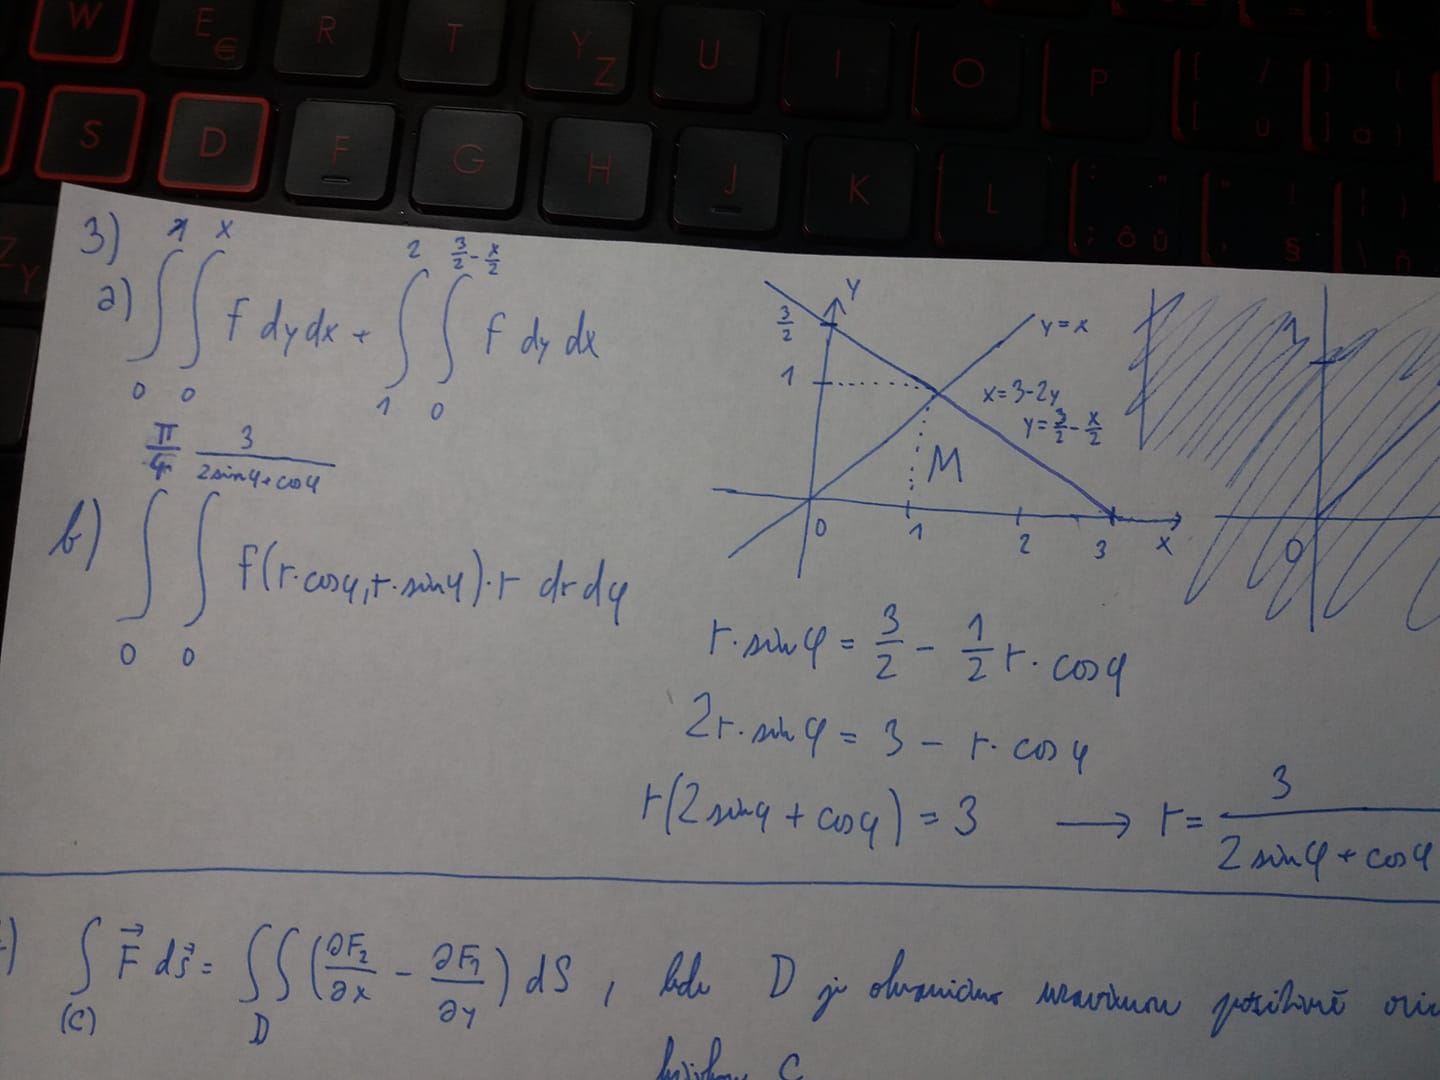 W E € R T Y Z U I O P [ / ú ] (
S D F G H J K L ; : " ô ů ' ! § | )
Z Y
3)
a) ∫₀¹ ∫₀ˣ f dy dx + ∫₁² ∫₀^(3/2 - x/2) f dy dx
b) ∫₀^(π/4) ∫₀^(3/(2sinφ+cosφ)) f(r·cosφ, r·sinφ)·r dr dφ
y
3/2
y=x
1
x=3-2y
y=3/2-x/2
M
0 1 2 3 x
0
r·sinφ = 3/2 - 1/2 r·cosφ
2r·sinφ = 3 - r·cosφ
r(2sinφ + cosφ) = 3 → r = 3/(2sinφ+cosφ)
) ∫_(C) F⃗ ds⃗ = ∬_D (∂F₂/∂x - ∂F₁/∂y) dS , kde D je pozitivně
C